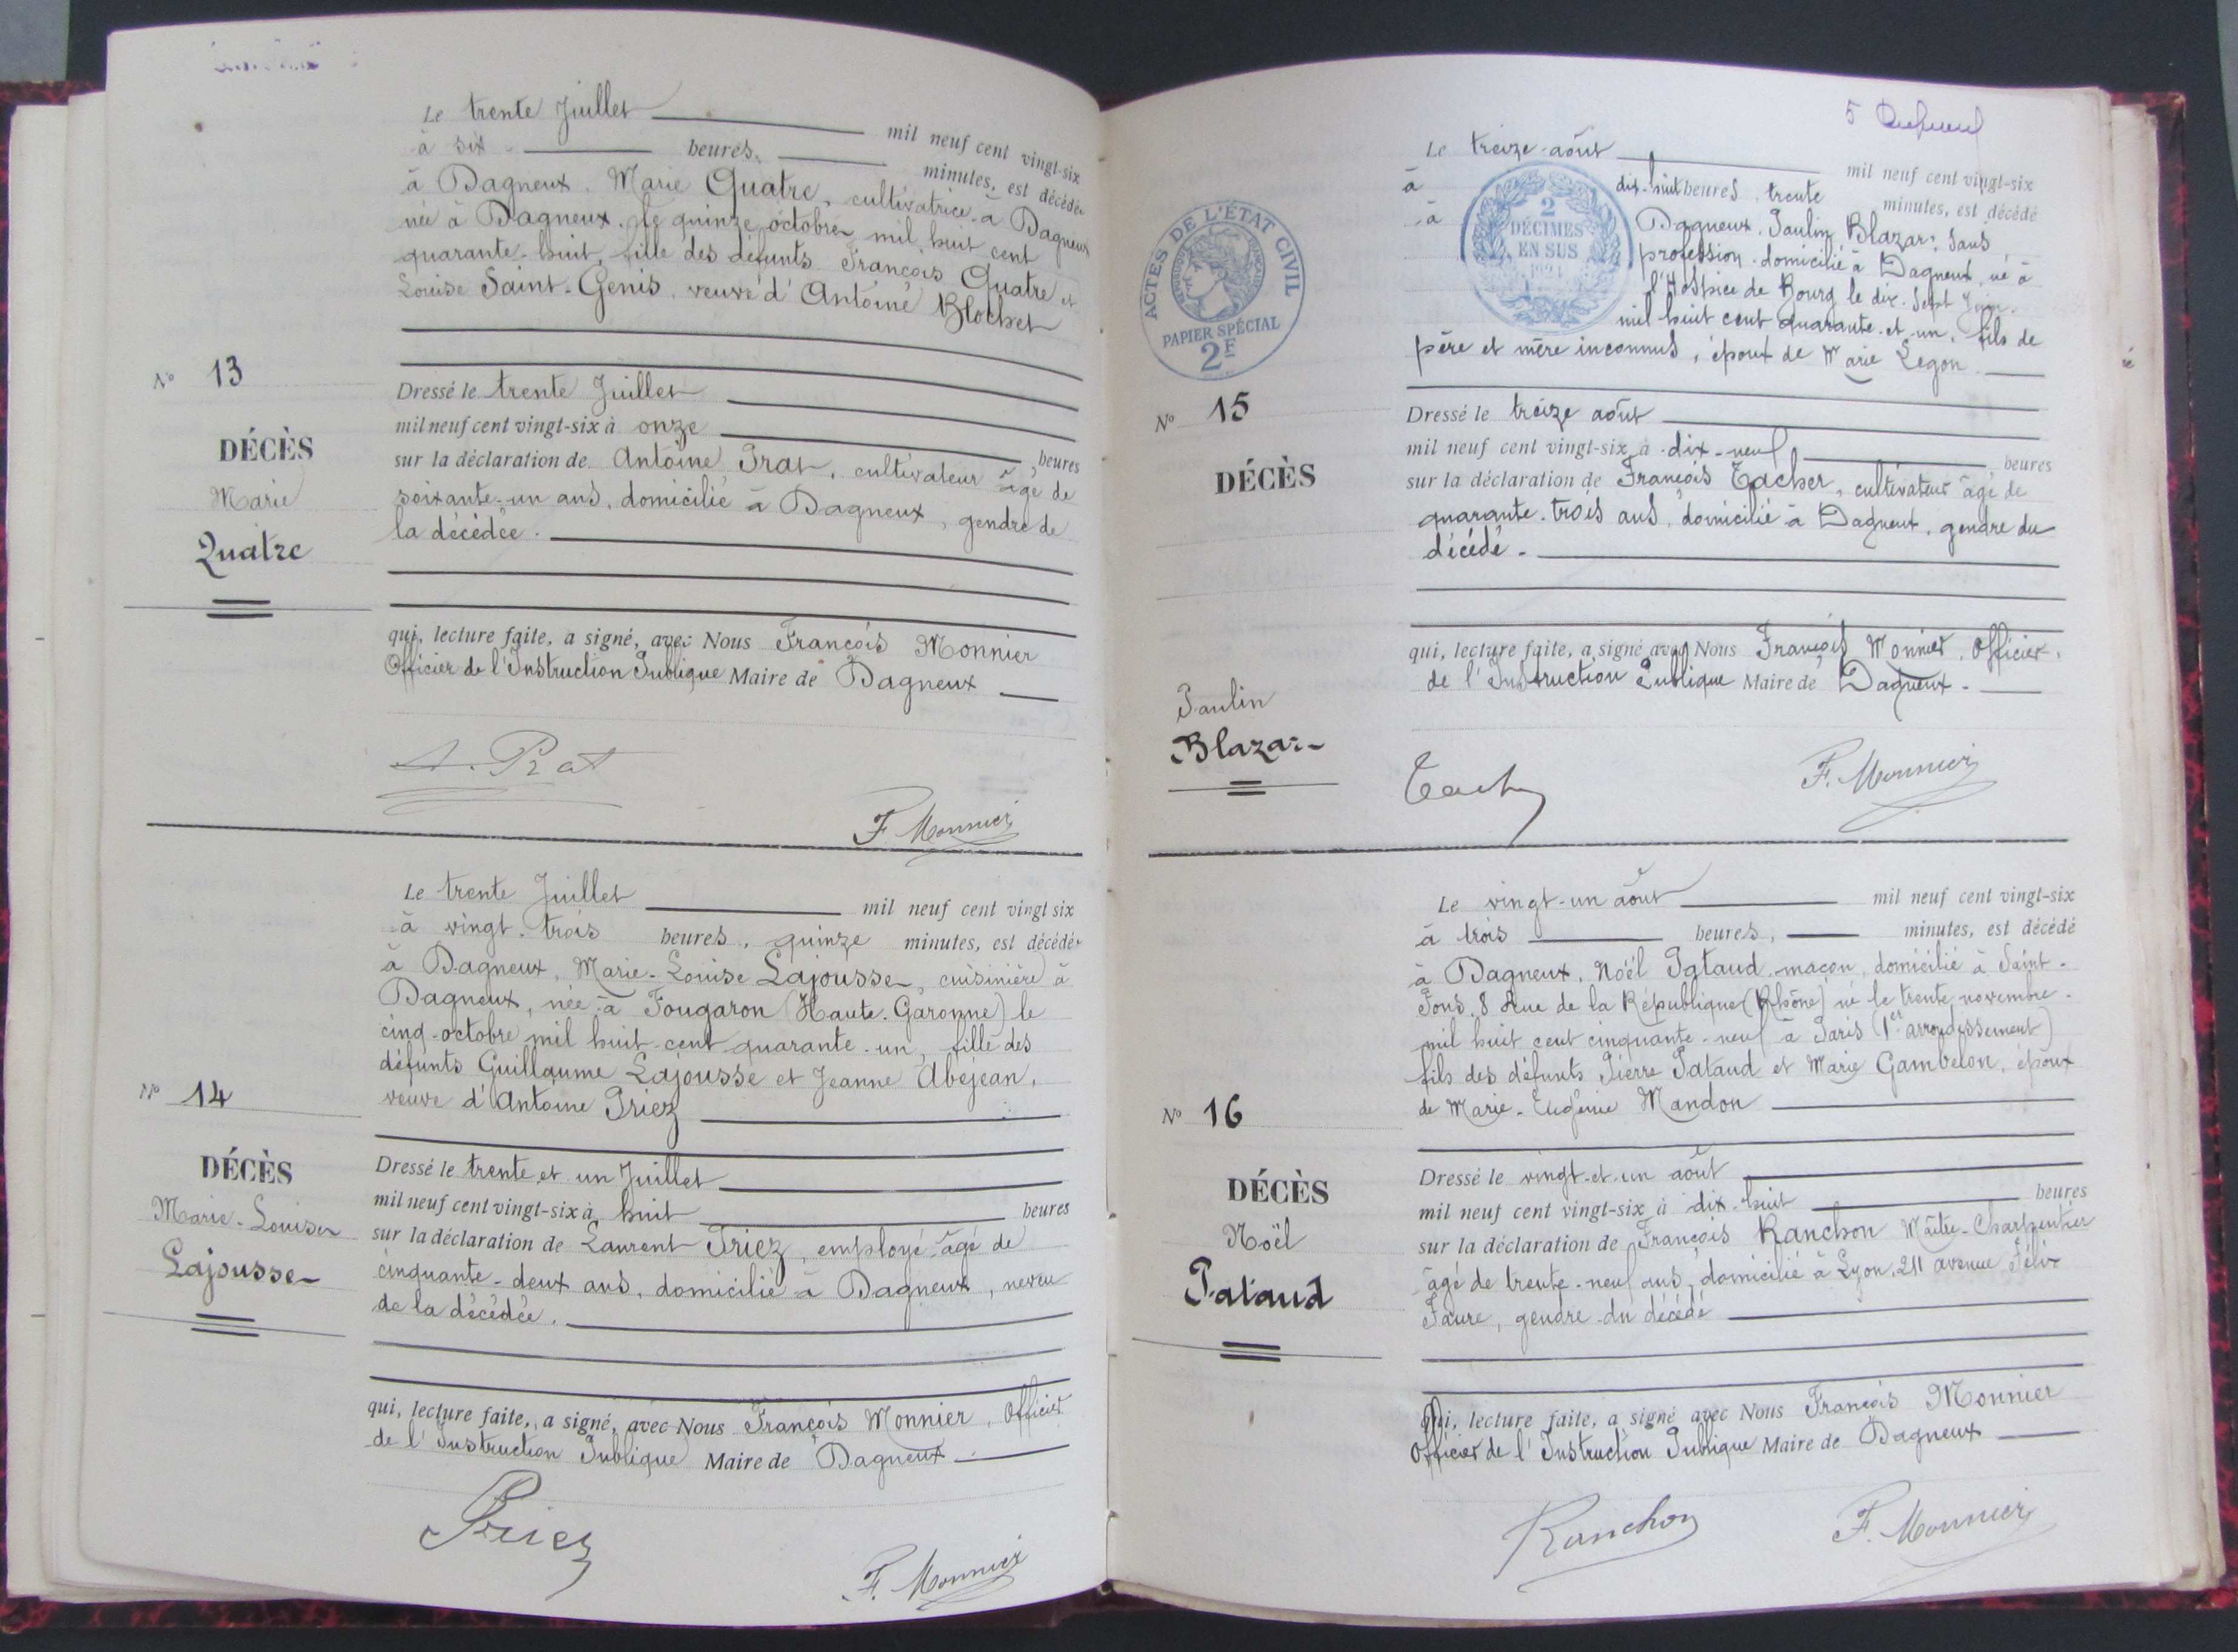 Le trente Juillet mil neuf cent vingt-six
à six heures, minutes, est décédée
à Dagneux, Marie Quatre, cultivatrice à Dagneux
née à Dagneux, le quinze octobre mil huit cent
quarante-huit, fille des défunts François Quatre et
Louise Saint-Genis, veuve d'Antoine Blochet
N° 13
DÉCÈS
Marie
Quatre
Dressé le trente Juillet
mil neuf cent vingt-six à onze heures
sur la déclaration de Antoine Prat, cultivateur âgé de
soixante-un ans, domicilié à Dagneux, gendre de
la décédée.
qui, lecture faite, a signé, avec Nous François Monnier
Officier de l'Instruction Publique Maire de Dagneux
A. Prat
F. Monnier
Le trente Juillet mil neuf cent vingt six
à vingt-trois heures, quinze minutes, est décédée
à Dagneux, Marie-Louise Lajousse, cuisinière à
Dagneux, née à Fougaron (Haute-Garonne) le
cinq octobre mil huit cent quarante-un, fille des
défunts Guillaume Lajousse et Jeanne Abejean,
veuve d'Antoine Priez
N° 14
DÉCÈS
Marie-Louise
Lajousse
Dressé le trente et un Juillet
mil neuf cent vingt-six à huit heures
sur la déclaration de Laurent Priez, employé âgé de
cinquante-deux ans, domicilié à Dagneux, neveu
de la décédée.
qui, lecture faite, a signé, avec Nous François Monnier, Officier
de l'Instruction Publique Maire de Dagneux
Priez
F. Monnier
5
ACTES DE L'ÉTAT CIVIL
PAPIER SPÉCIAL
2F
2
DÉCIMES
EN SUS
Le treize août mil neuf cent vingt-six
à dix-huit heures, trente minutes, est décédé
à Dagneux, Paulin Blazar, sans
profession domicilié à Dagneux, né à
l'Hospice de Bourg le dix-sept
mil huit cent quarante-et-un, fils de
père et mère inconnus, époux de Marie Legon
N° 15
DÉCÈS
Paulin
Blazar
Dressé le treize août
mil neuf cent vingt-six à dix-neuf heures
sur la déclaration de François Tacher, cultivateur âgé de
quarante-trois ans, domicilié à Dagneux, gendre du
décédé.
qui, lecture faite, a signé avec Nous François Monnier, Officier
de l'Instruction Publique Maire de Dagneux
F. Monnier
Le vingt-un août mil neuf cent vingt-six
à trois heures, minutes, est décédé
à Dagneux, Noël Pataud maçon, domicilié à Saint-
Fons, 8 Rue de la République (Rhône) né le trente novembre
mil huit cent cinquante-neuf à Paris (1er arrondissement)
fils des défunts Pierre Pataud et Marie Gambelon, époux
de Marie-Eugénie Mandon
N° 16
DÉCÈS
Noël
Pataud
Dressé le vingt-et-un août
mil neuf cent vingt-six à dix-huit heures
sur la déclaration de François Ranchon Maître-Charpentier
âgé de trente-neuf ans, domicilié à Lyon, 211 avenue Félix
Faure, gendre du décédé
qui, lecture faite, a signé avec Nous François Monnier
Officier de l'Instruction Publique Maire de Dagneux
Ranchon
F. Monnier